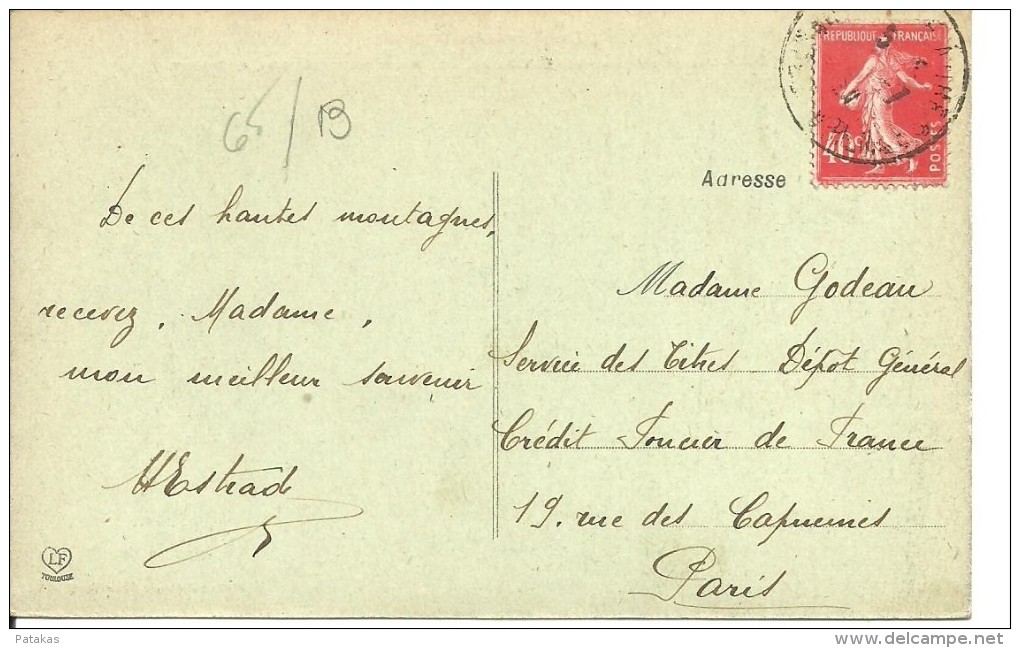 65/13
De ces hautes montagnes,
recevez, Madame,
mon meilleur souvenir
HEstrade
LF
TOULOUSE
REPUBLIQUE FRANÇAISE
40c
POSTES
Adresse
Madame Godeau
Service des Titres Dépôt Général
Crédit Foncier de France
19. rue des Capucines
Paris
Patakas
www.delcampe.net